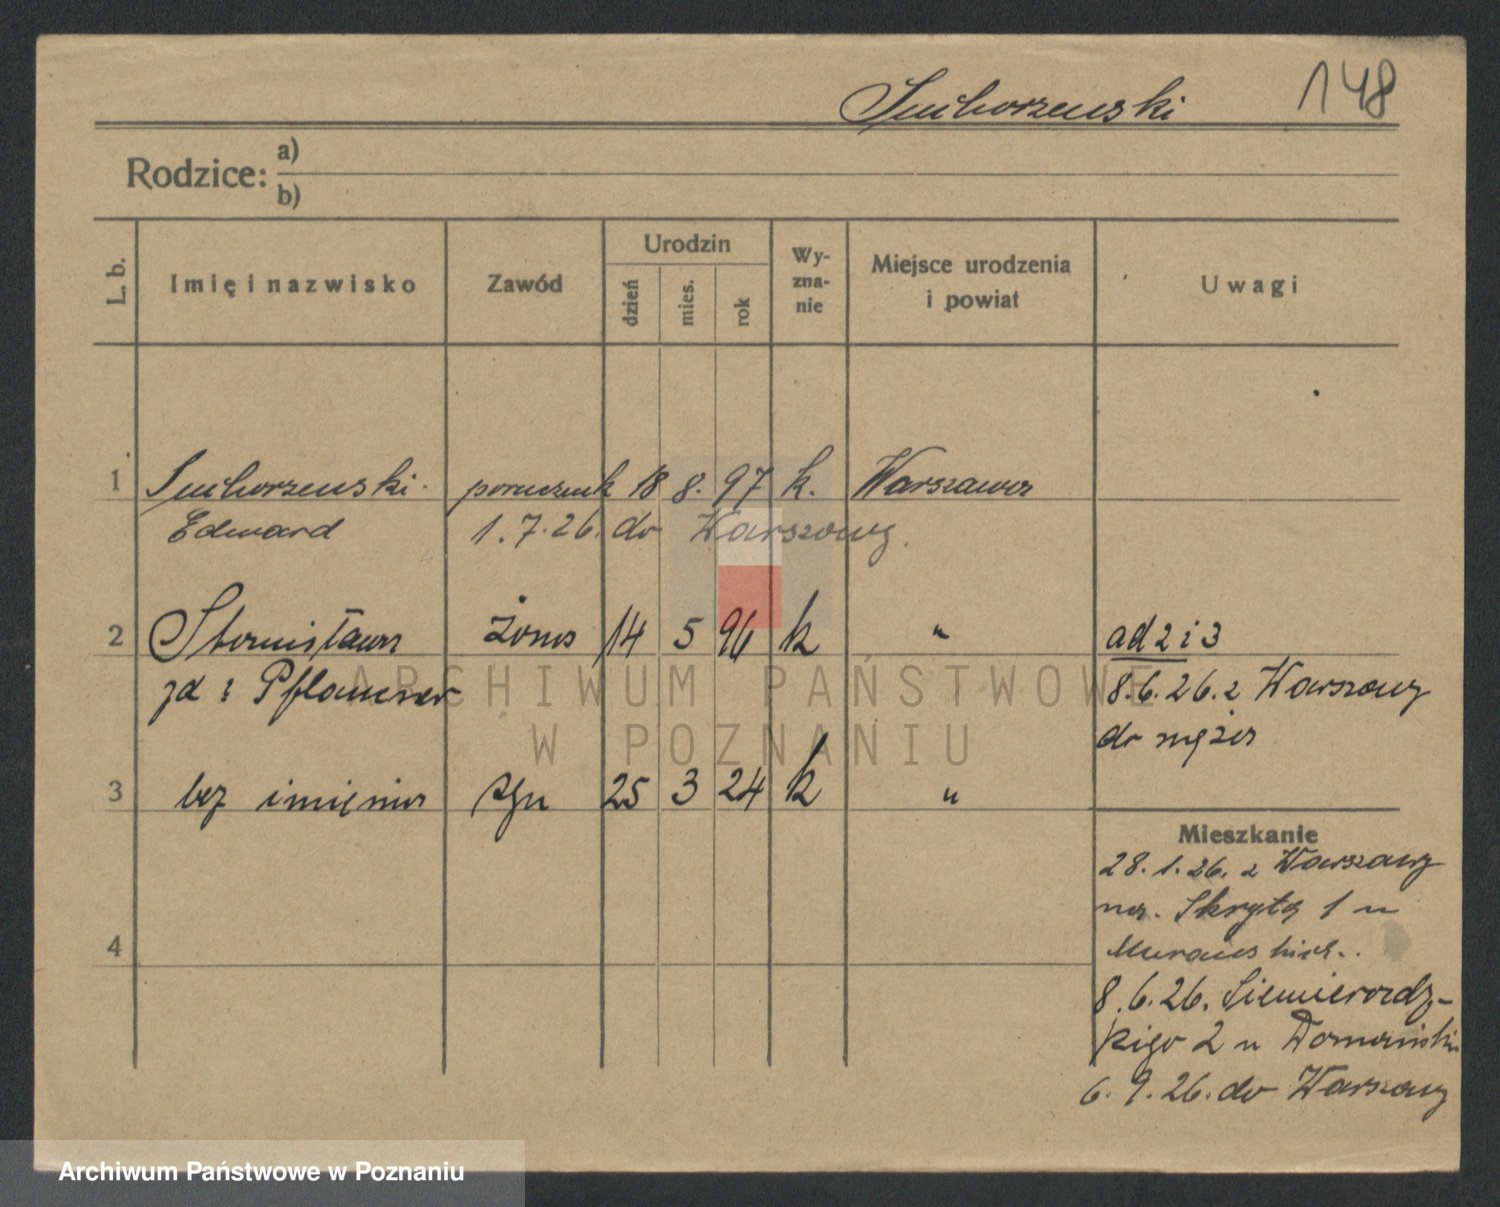 Suchorzewski 148
Rodzice: a)
b)
L. b. Imię i nazwisko Zawód Urodzin dzień mies. rok Wy-zna-nie Miejsce urodzenia i powiat Uwagi
1 Suchorzewski porucznik 18 8. 97 k. Warszawa
Edward 1.7.26. do Warszawy.
2 Stanisława żona 14 5 96 k " ad 2 i 3
zd : 8.6.26. z Warszawy
do męża
3 bez imienia syn 25 3 24 k "
Mieszkanie
28.1.26. z Warszawy
na. Skryta 1 u
4
8.6.26. Siemieradz-
kigo 2 u
6.9.26. do Warszawy
ARCHIWUM PAŃSTWOWE
W POZNANIU
Archiwum Państwowe w Poznaniu